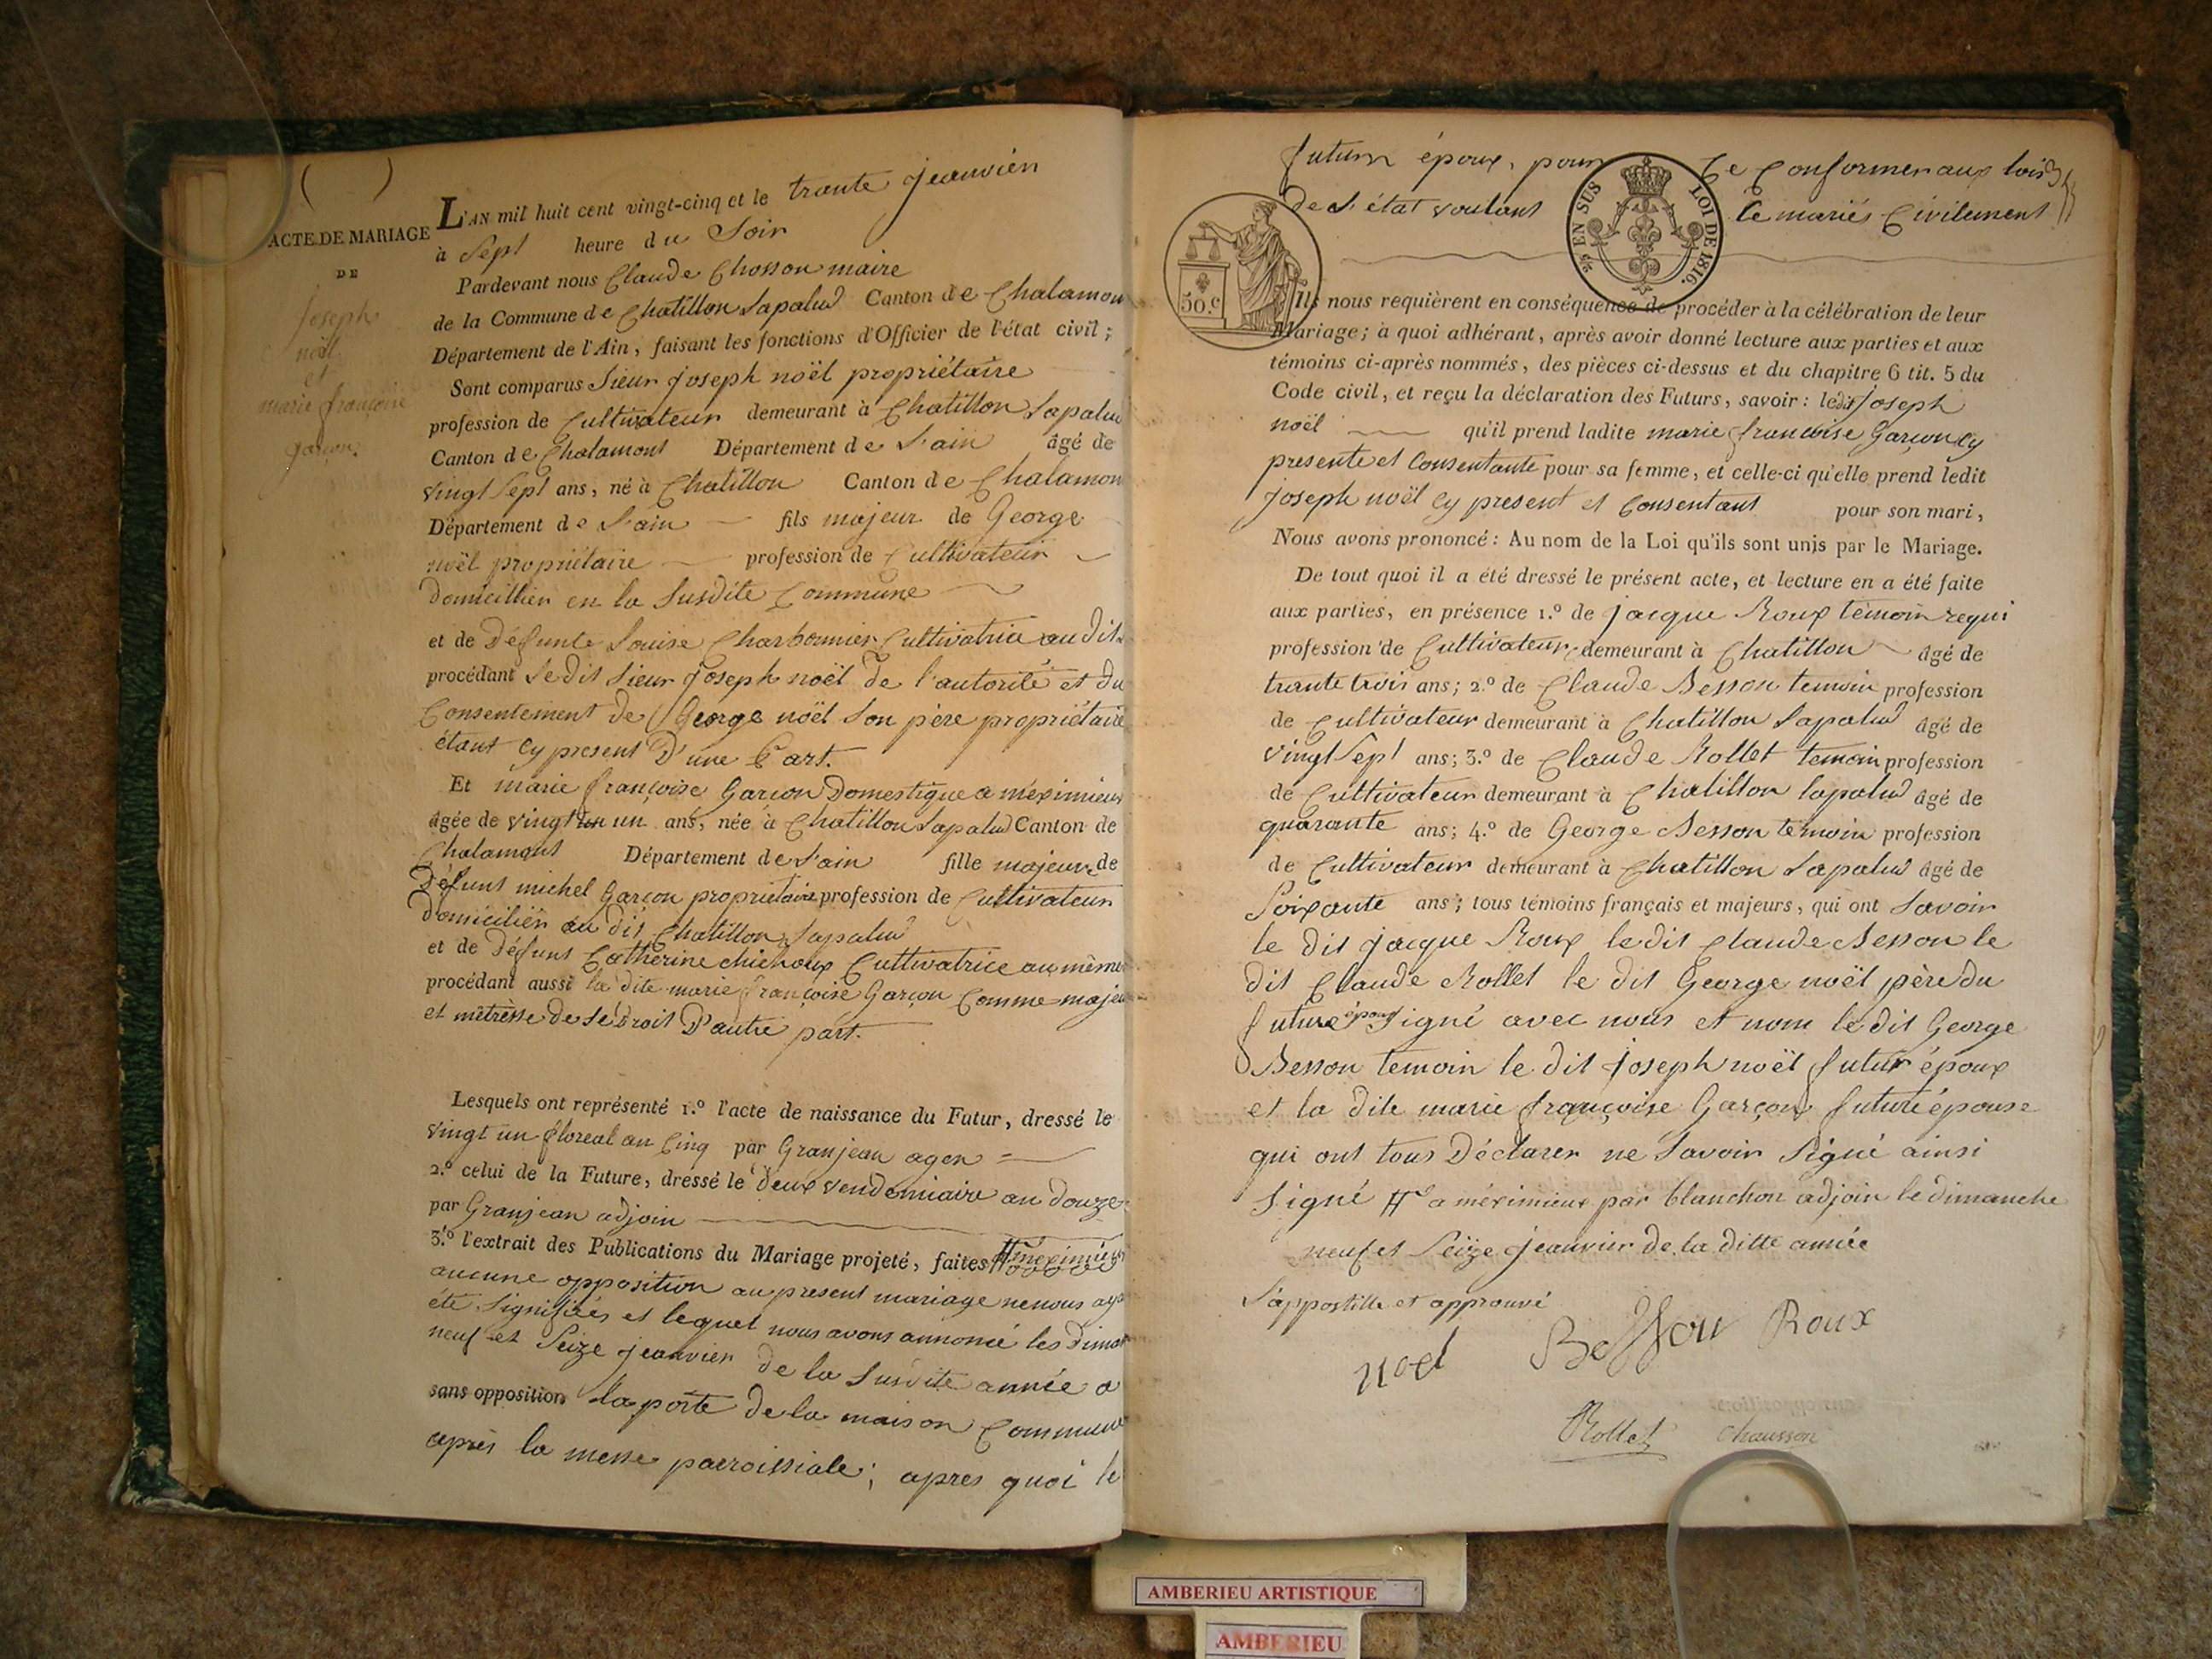 ( )
ACTE DE MARIAGE
DE
joseph
noël
et
marie françoise
garçon
L'AN mil huit cent vingt-cinq et le trante jeanvien
à Sept heure du Soir
Pardevant nous Claude Chosson maire
de la Commune de Chatillon Lapalud Canton de Chalamon
Département de l'Ain, faisant les fonctions d'Officier de l'état civil;
Sont comparus Sieur joseph noël propriétaire
profession de Cultivateur demeurant à Chatillon Lapalud
Canton de Chalamont Département de L'ain âgé de
vingt Sept ans, né à Chatillon Canton de Chalamon
Département de L'ain fils majeur de George
noël propriétaire profession de Cultivateur
Domicillier en la Susdite Commune
et de Défunte Louise Charbonnier Cultivatrice au dit
procédant Ledit Sieur joseph noël de l'autorité et du
Consentement de George noël Son père propriétaire
étant Cy present D'une Part.
Et marie françoise Garcon Domestique a méximieux
âgée de vingt un ans, née à Chatillon Lapalud Canton de
Chalamont Département de L'ain fille majeure de
Défunt michel Garcon propriétaire profession de Cultivateur
Domicilier au dit Chatillon Lapalud
et de Défunt Catherine chichoux Cultivatrice au même
procédant aussi la dite marie françoise Garçon Comme majeu
et métresse de Se Droit D'autre part.
Lesquels ont représenté 1.º l'acte de naissance du Futur, dressé le
vingt un floreal an Cinq par Granjean agen
2.º celui de la Future, dressé le deux vendemiaire an douze
par Granjean adjoin
3.º l'extrait des Publications du Mariage projeté, faites # méximieux
aucune opposition au present mariage ne nous aya
été Signifiés et lequel nous avons annoncé les Diman
neuf et Seize jeanvien de la Susdite année a
sans opposition la porte de la maison Commune
après la messe parroissiale; apres quoi le
futurn époux, pour Se Conformer aux lois
de L'état voulant Ce mariés Civilement
50.c
EN SUS LOI DE 1816.
Ils nous requièrent en conséquence de procéder à la célébration de leur
Mariage; à quoi adhérant, après avoir donné lecture aux parties et aux
témoins ci-après nommés, des pièces ci-dessus et du chapitre 6 tit. 5 du
Code civil, et reçu la déclaration des Futurs, savoir: ledit Joseph
noël qu'il prend ladite marie françoise Garçon Cy
presente et Consentante pour sa femme, et celle-ci qu'elle prend ledit
joseph noël Cy present et Consentant pour son mari,
Nous avons prononcé: Au nom de la Loi qu'ils sont unis par le Mariage.
De tout quoi il a été dressé le présent acte, et lecture en a été faite
aux parties, en présence 1.º de jacque Roux témoin requi
profession de Cultivateur demeurant à Chatillon âgé de
trante trois ans; 2.º de Claude Besson temoin profession
de Cultivateur demeurant à Chatillon Lapalud âgé de
vingt Sept ans; 3.º de Claude Rollet temoin profession
de Cultivateur demeurant à Chatillon lapalud âgé de
quarante ans; 4.º de George Besson témoin profession
de Cultivateur demeurant à Chatillon Lapalud âgé de
Soixante ans; tous témoins français et majeurs, qui ont Savoir
le dit jacque Roux le dit Claude Besson le
dit Claude Rollet le dit George noël père du
future époux Signé avec nous et nom le dit George
Besson temoin le dit joseph noël futur époux
et la dite marie françoise Garçon future épouse
qui ont tous Déclarer ne Savoir Signé ainsi
Signé # a méximieux par blanchon adjoin le dimanche
neuf et Seize jeanvier de la ditte année
L'appostille et approuvé
noel Besson Roux
Rollet Chausson
AMBERIEU ARTISTIQUE
AMBERIEU